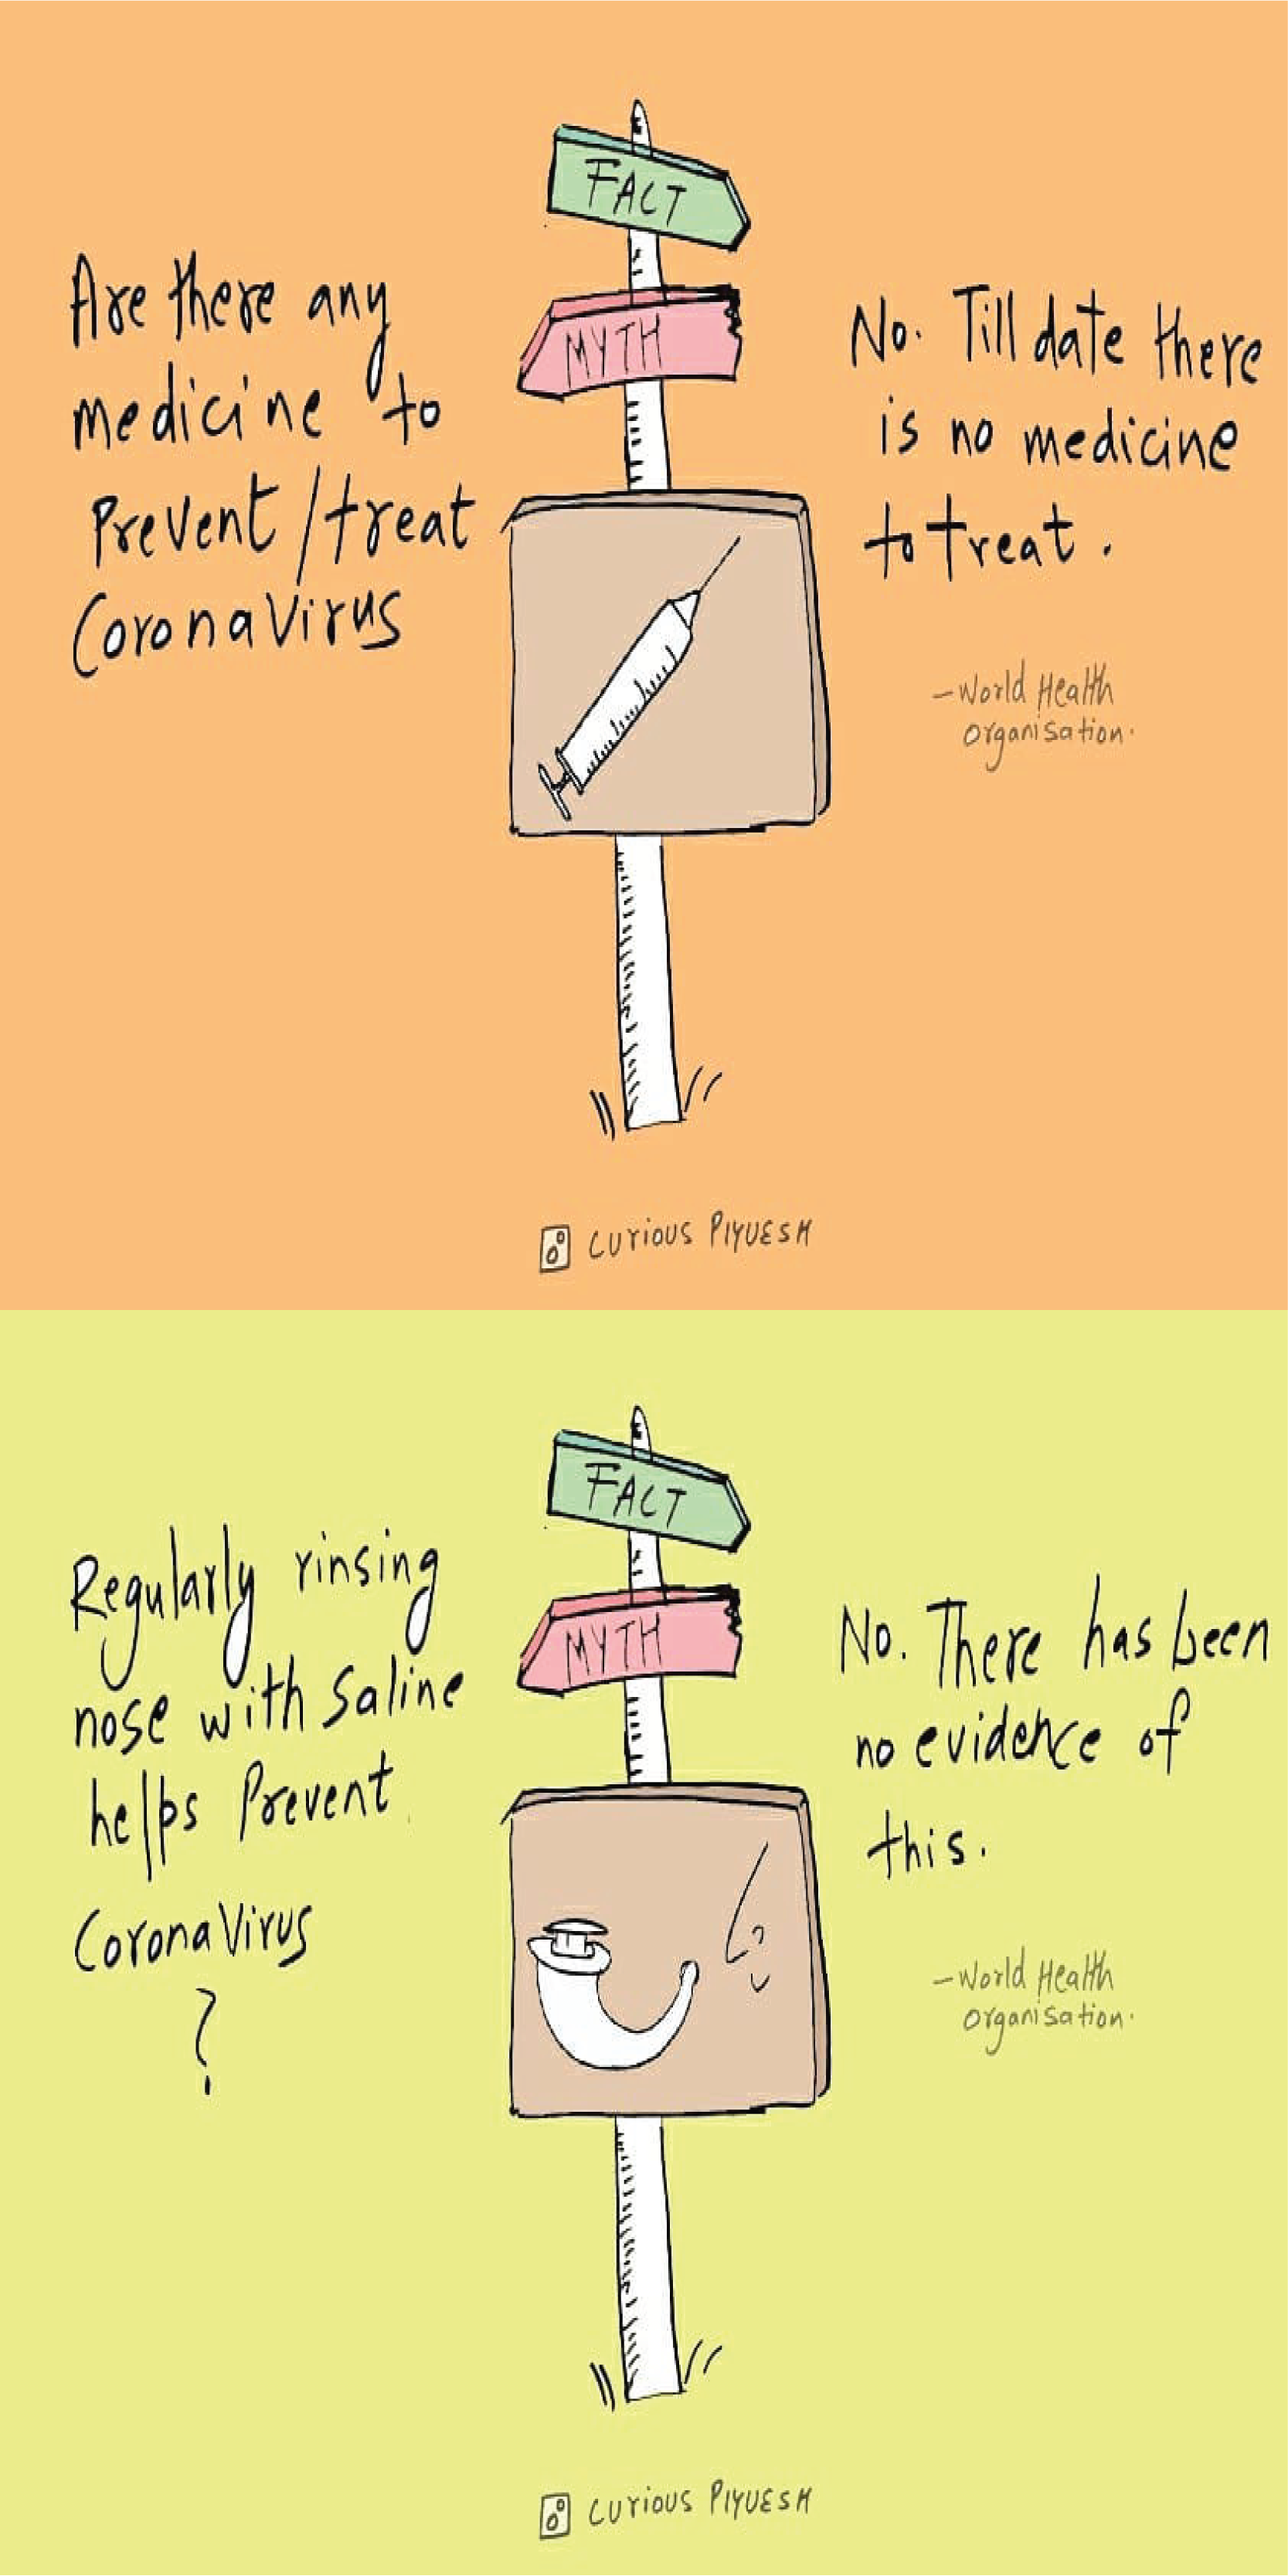 FACT
MYTH
Are there any
medicine to
Prevent/treat
CoronaVirus
No. Till date there
is no medicine
to treat.
-World Health
Organisation.
CURIOUS PIYUESH
FACT
MYTH
Regularly rinsing
nose with saline
helps Prevent
CoronaVirus
?
No. There has been
no evidence of
this.
-World Health
Organisation.
CURIOUS PIYUESH